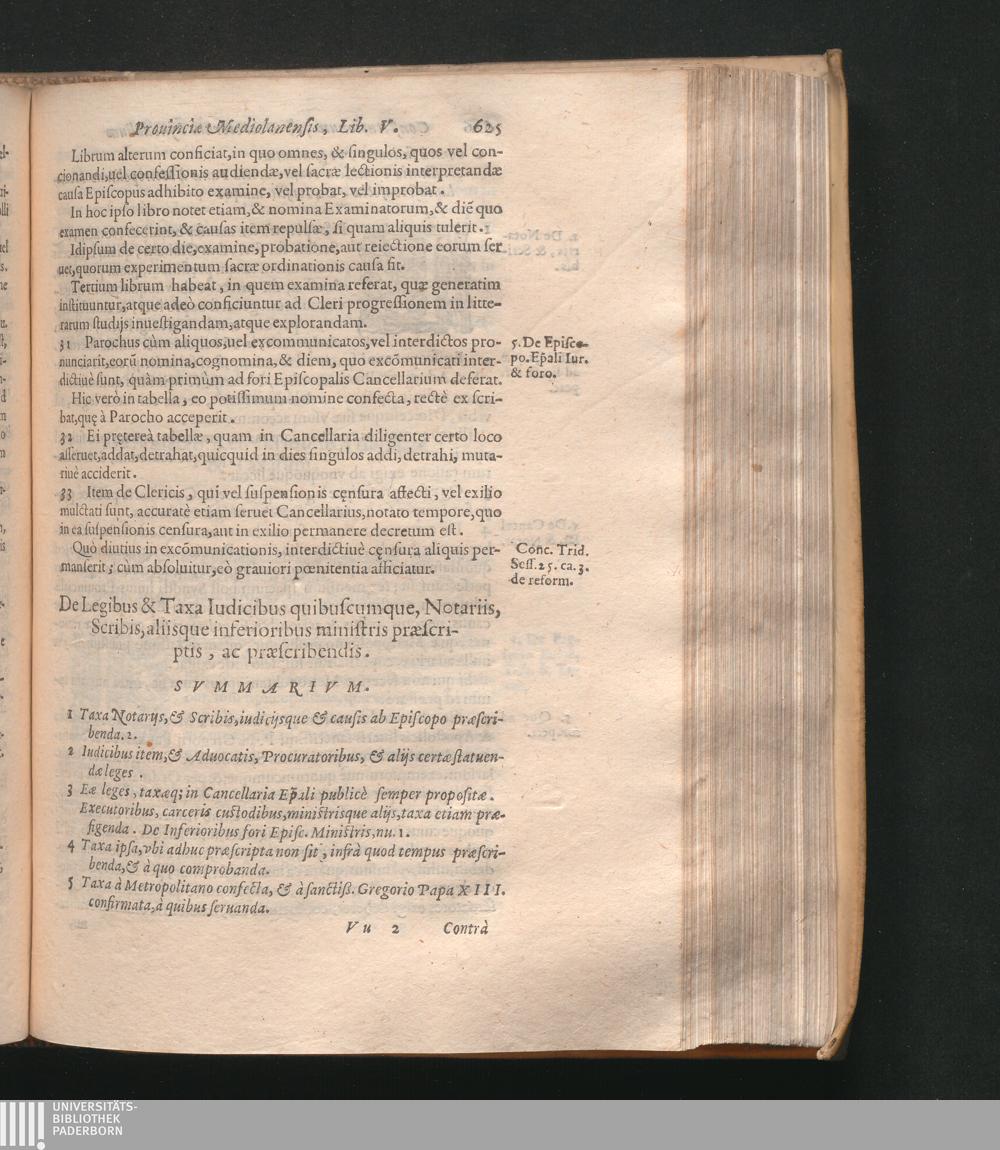 Prouinciæ Mediolanensis, Lib. V. 625
Librum alterum conficiat,in quo omnes, & singulos, quos vel con-
cionandi,uel confessionis audiendæ,vel sacræ lectionis interpretandæ
causa Episcopus adhibito examine, vel probat, vel improbat.
In hoc ipso libro notet etiam,& nomina Examinatorum,& diē quo
examen confecerint, & causas item repulsæ, si quam aliquis tulerit.
Idipsum de certo die,examine,probatione,aut reiectione eorum ser
uet,quorum experimentum sacræ ordinationis causa fit.
Tertium librum habeat, in quem examina referat, quæ generatim
instituuntur,atque adeò conficiuntur ad Cleri progressionem in litte-
rarum studijs inuestigandam,atque explorandam.
31 Parochus cùm aliquos,uel excommunicatos,vel interdictos pro-
nunciarit,eorū nomina,cognomina,& diem, quo excōmunicati inter-
dictiuè sunt, quàm primùm ad fori Episcopalis Cancellarium deferat.
5.De Episco-
po.Ep̄ali Iur.
& foro.
Hic verò in tabella, eo potissimum nomine confecta, rectè ex scri-
bat,quę à Parocho acceperit.
32 Ei pręterea tabellæ, quam in Cancellaria diligenter certo loco
asseruet,addat,detrahat,quicquid in dies singulos addi, detrahi, muta-
riuè acciderit.
33 Item de Clericis, qui vel suspensionis cęnsura affecti, vel exilio
mulctati sunt, accuratè etiam seruet Cancellarius,notato tempore,quo
in ea suspensionis censura,aut in exilio permanere decretum est.
Quò diutius in excōmunicationis, interdictiuè cęnsura aliquis per-
manserit; cùm absoluitur,eò grauiori pœnitentia afficiatur.
Conc. Trid.
Sess.25. ca.3.
de reform.
De Legibus & Taxa Iudicibus quibuscumque, Notariis,
Scribis,aliisque inferioribus ministris præscri-
ptis, ac præscribendis.
SVMMARIVM.
1 Taxa Notarijs,& Scribis,iudicijsque & causis ab Episcopo præscri-
benda.2.
2 Iudicibus item,& Aduocatis, Procuratoribus, & alijs certæ statuen-
dæ leges.
3 Eæ leges, taxæq; in Cancellaria Ep̄ali publicè semper propositæ.
Executoribus, carceris custodibus,ministrisque alijs,taxa etiam præ-
figenda. De Inferioribus fori Episc. Ministris,nu.1.
4 Taxa ipsa,vbi adhuc præscripta non sit, infrà quod tempus præscri-
benda,& à quo comprobanda.
5 Taxa à Metropolitano confecta, & à sanctiß. Gregorio Papa XIII.
confirmata,à quibus seruanda.
Vu 2 Contrà
UNIVERSITÄTS-
BIBLIOTHEK
PADERBORN